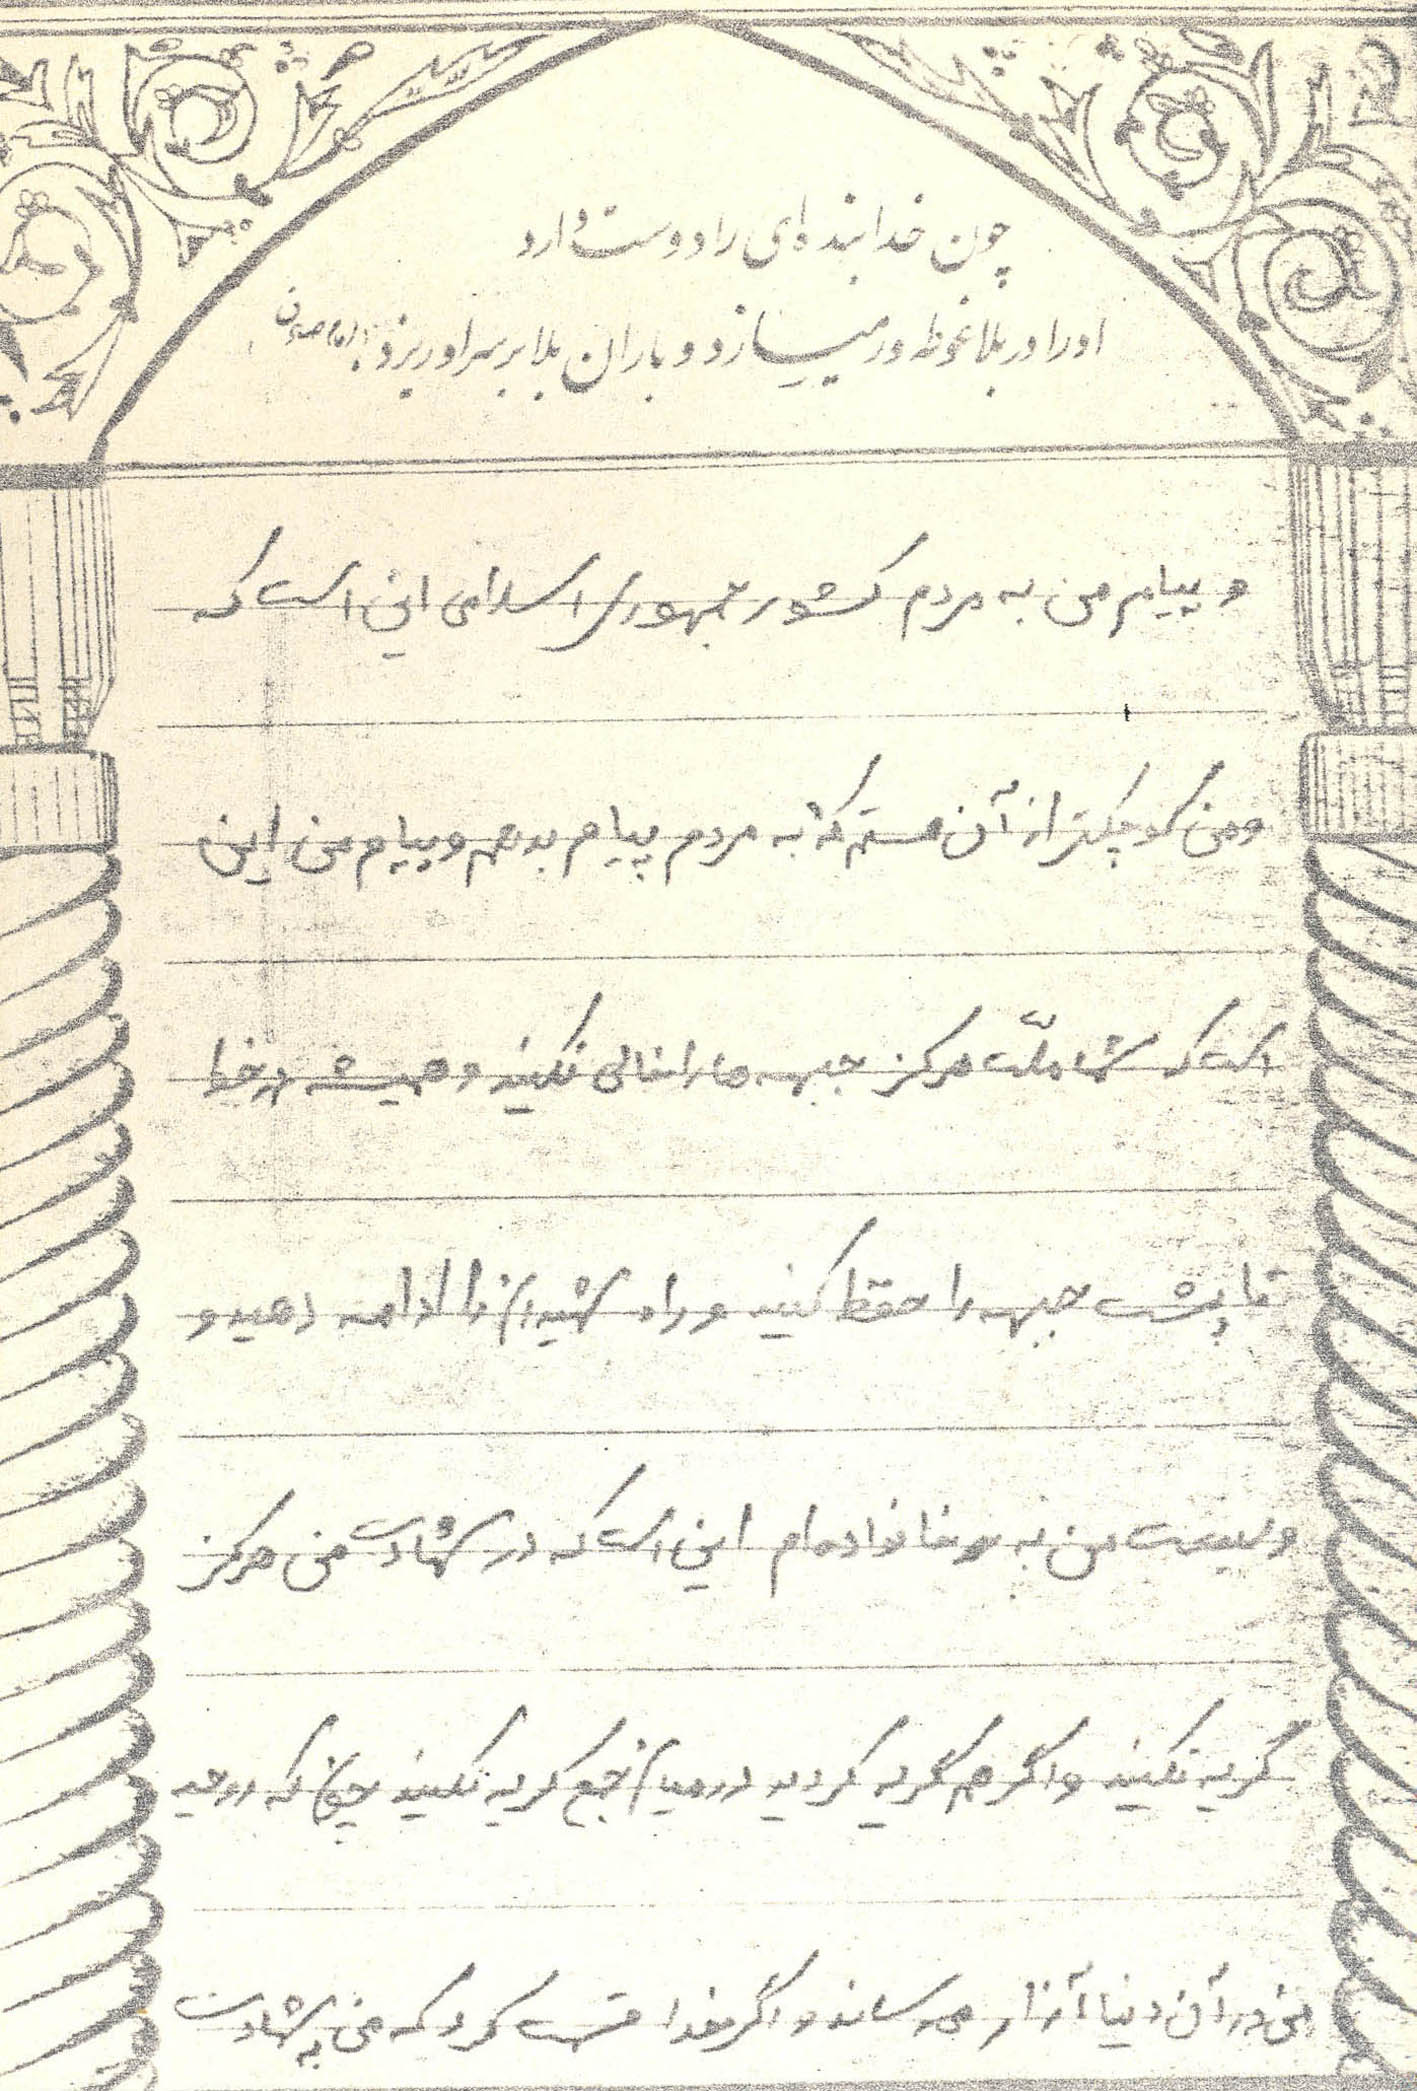 چون خدا بنده‌ای را دوست دارد
او را در بلا غوطه ور میسازد و باران بلا بر سر او ریزد. امام صادق
و پیام من به مردم کشور جمهوری اسلامی این است که
و من کوچکتر از آن هستم که به مردم پیام بدهم و پیام من این
است که شما ملّت هرگز جبهه ها را خالی نکنید و همیشه در خط
تا پشت جبهه را حفظ کنید و راه شهیدان را ادامه دهید و
وصیت من به خانواده‌ام این است که در شهادت من هرگز
گریه نکنید و اگر هم گریه کردید در میان جمع گریه نکنید چون که روحیه
من در آن دنیا آزار می رساند و اگر خدا قسمت کرد که من به شهادت